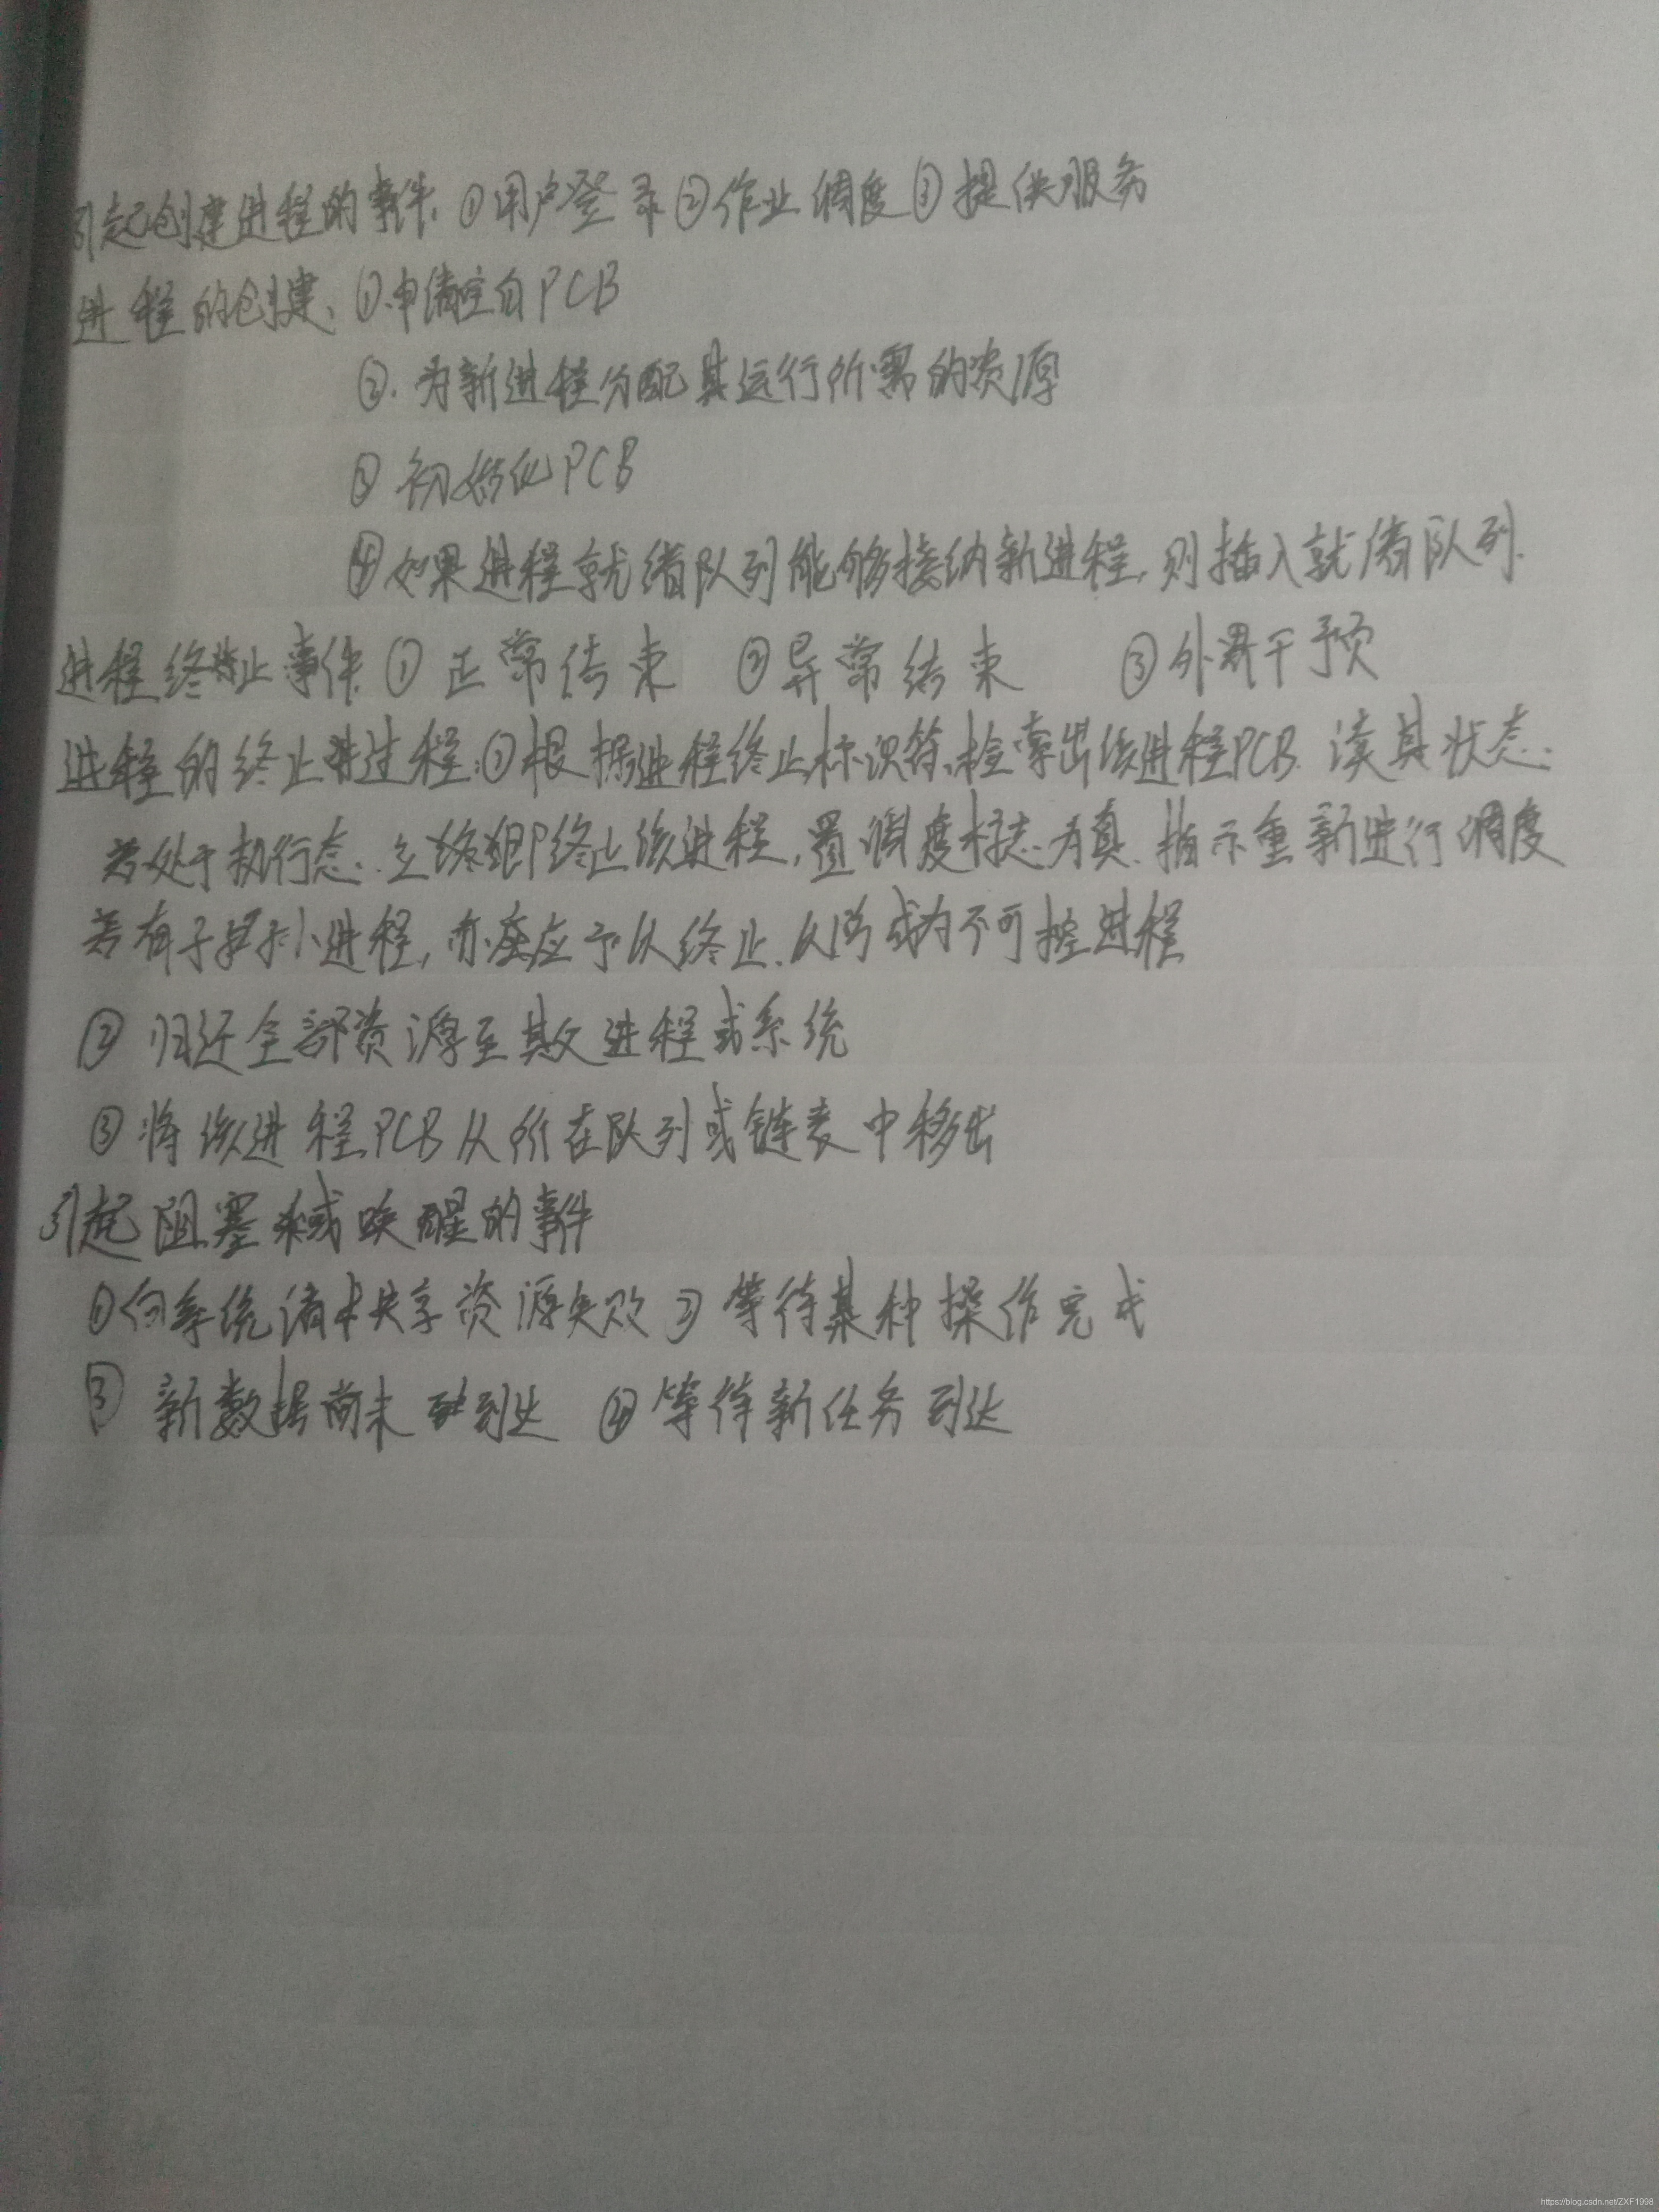 引起创建进程的事件:①用户登录②作业调度③提供服务
进程的创建、①.申请空白PCB
②.为新进程分配其运行所需的资源
③初始化PCB
④如果进程就绪队列能够接纳新进程,则插入就绪队列.
进程终止事件①正常结束 ②异常结束 ③外界干预
进程的终止过程:①根据进程终止标识符,检索出该进程PCB.读其状态.
若处于执行态.立即终止该进程,置调度标志为真.指示重新进行调度
若有子孙进程,亦应予以终止.以防成为不可控进程
②归还全部资源至其父进程或系统
③将该进程PCB从所在队列或链表中移出
引起阻塞或唤醒的事件
①向系统请求共享资源失败②等待某种操作完成
③新数据尚未到达 ④等待新任务到达
https://blog.csdn.net/ZXF1998